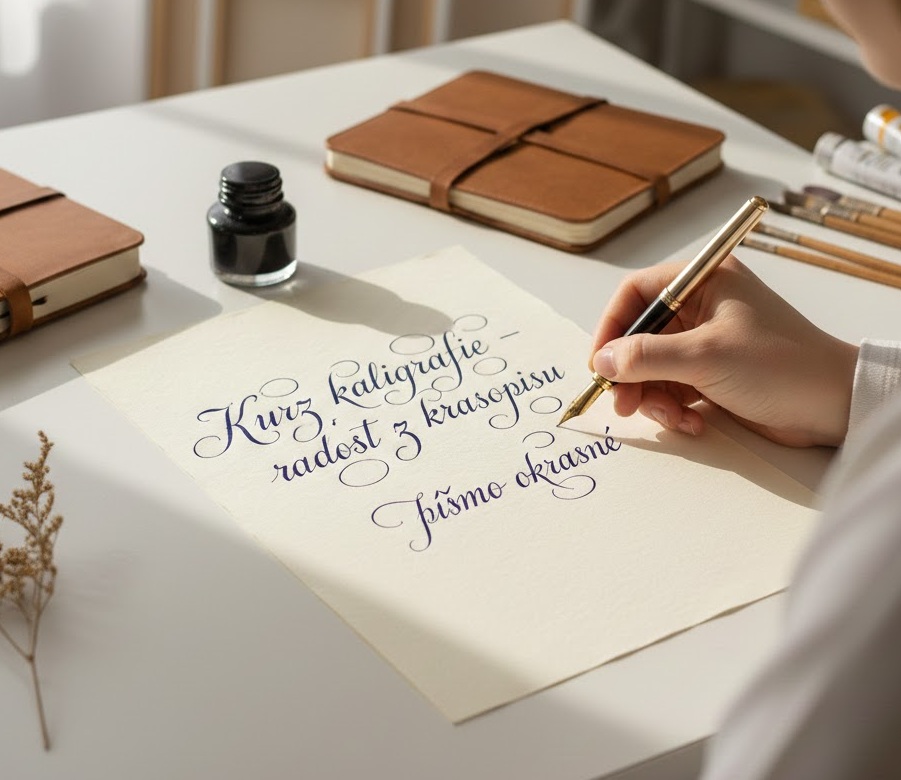 Kurz kaligrafie –
radost z krasopisu
pîšmo okrasné